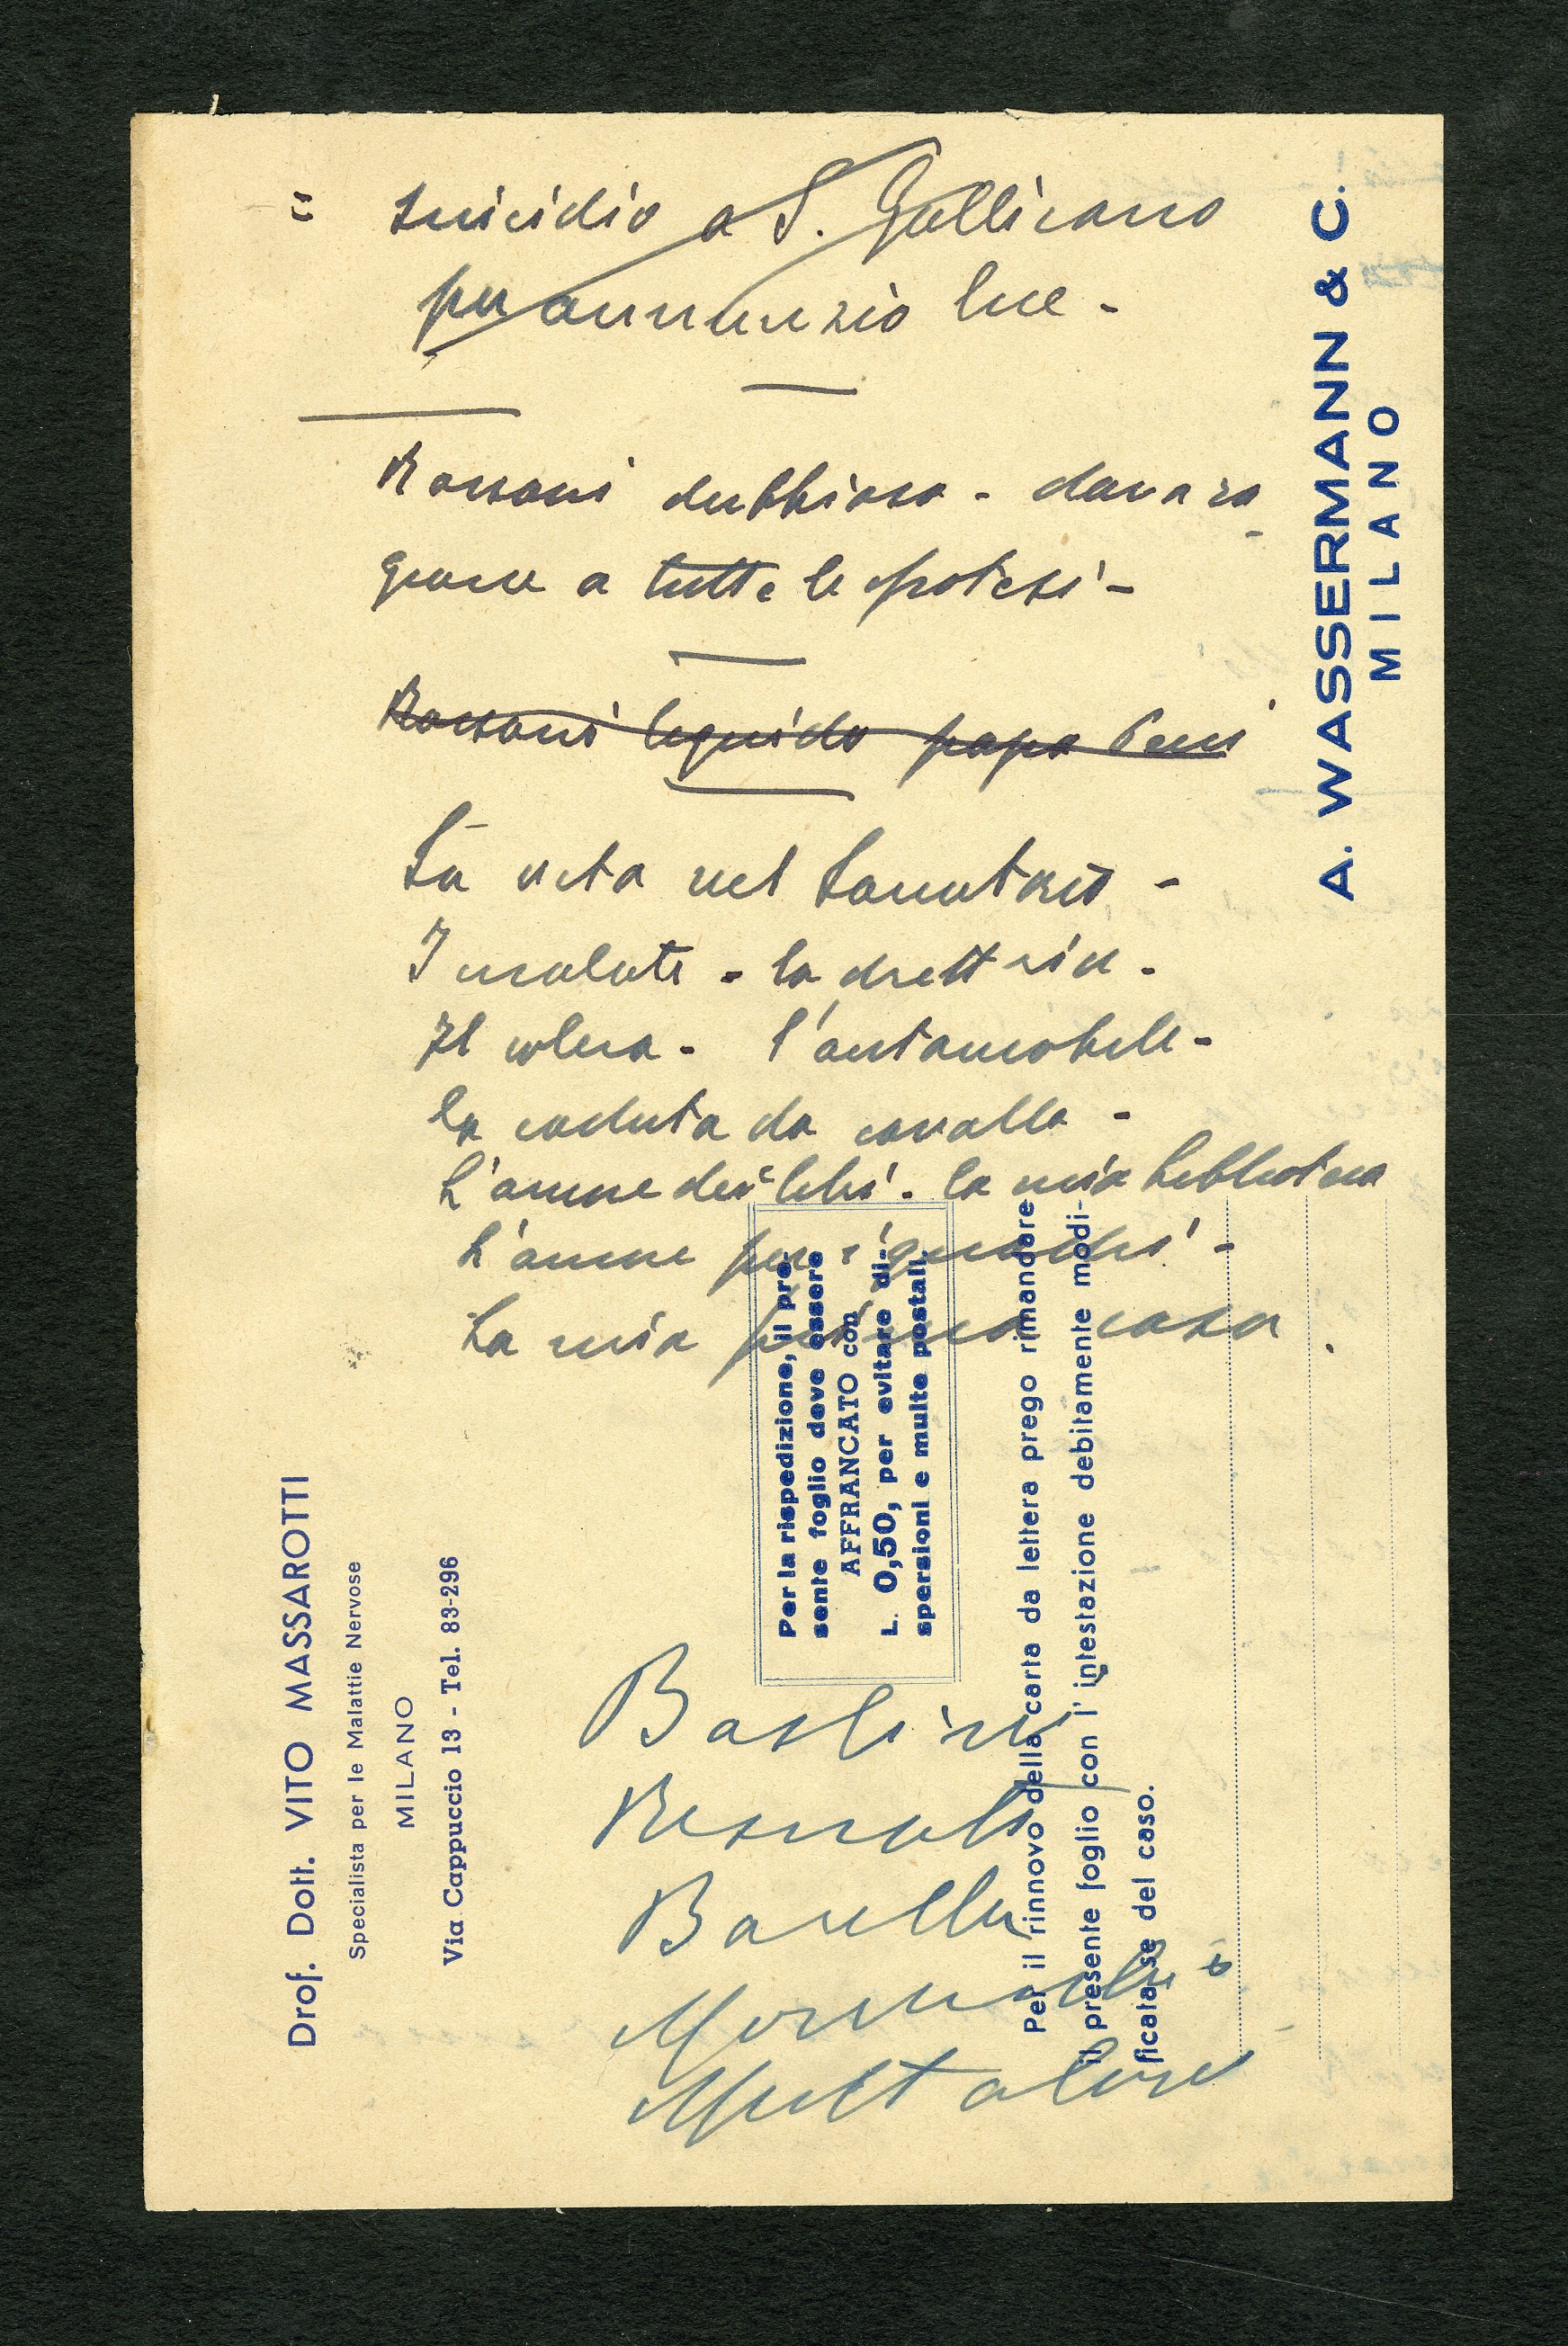 = suicidio a S. Gallicano
per annunzio lue -
Rossoni dubbioso - davano
grane a tutte le ipotesi -
Rossoni liquido papa
La vita nel Sanatorio -
Insalate - la
Il colera - l'automobile -
la caduta da cavallo -
L'amore dei libri - la mia biblioteca
L'amore per i quadri -
La mia prima casa .
Baslini
Resnati
Barella
A. WASSERMANN & C.
MILANO
Per la rispedizione, il pre-
sente foglio deve essere
AFFRANCATO con
L. 0,50, per evitare di-
spersioni e multe postali.
Per il rinnovo della carta da lettera prego rimandare
il presente foglio con l' intestazione debitamente modi-
ficata se del caso.
Prof. Dott. VITO MASSAROTTI
Specialista per le Malattie Nervose
MILANO
Via Cappuccio 13 - Tel. 83-296